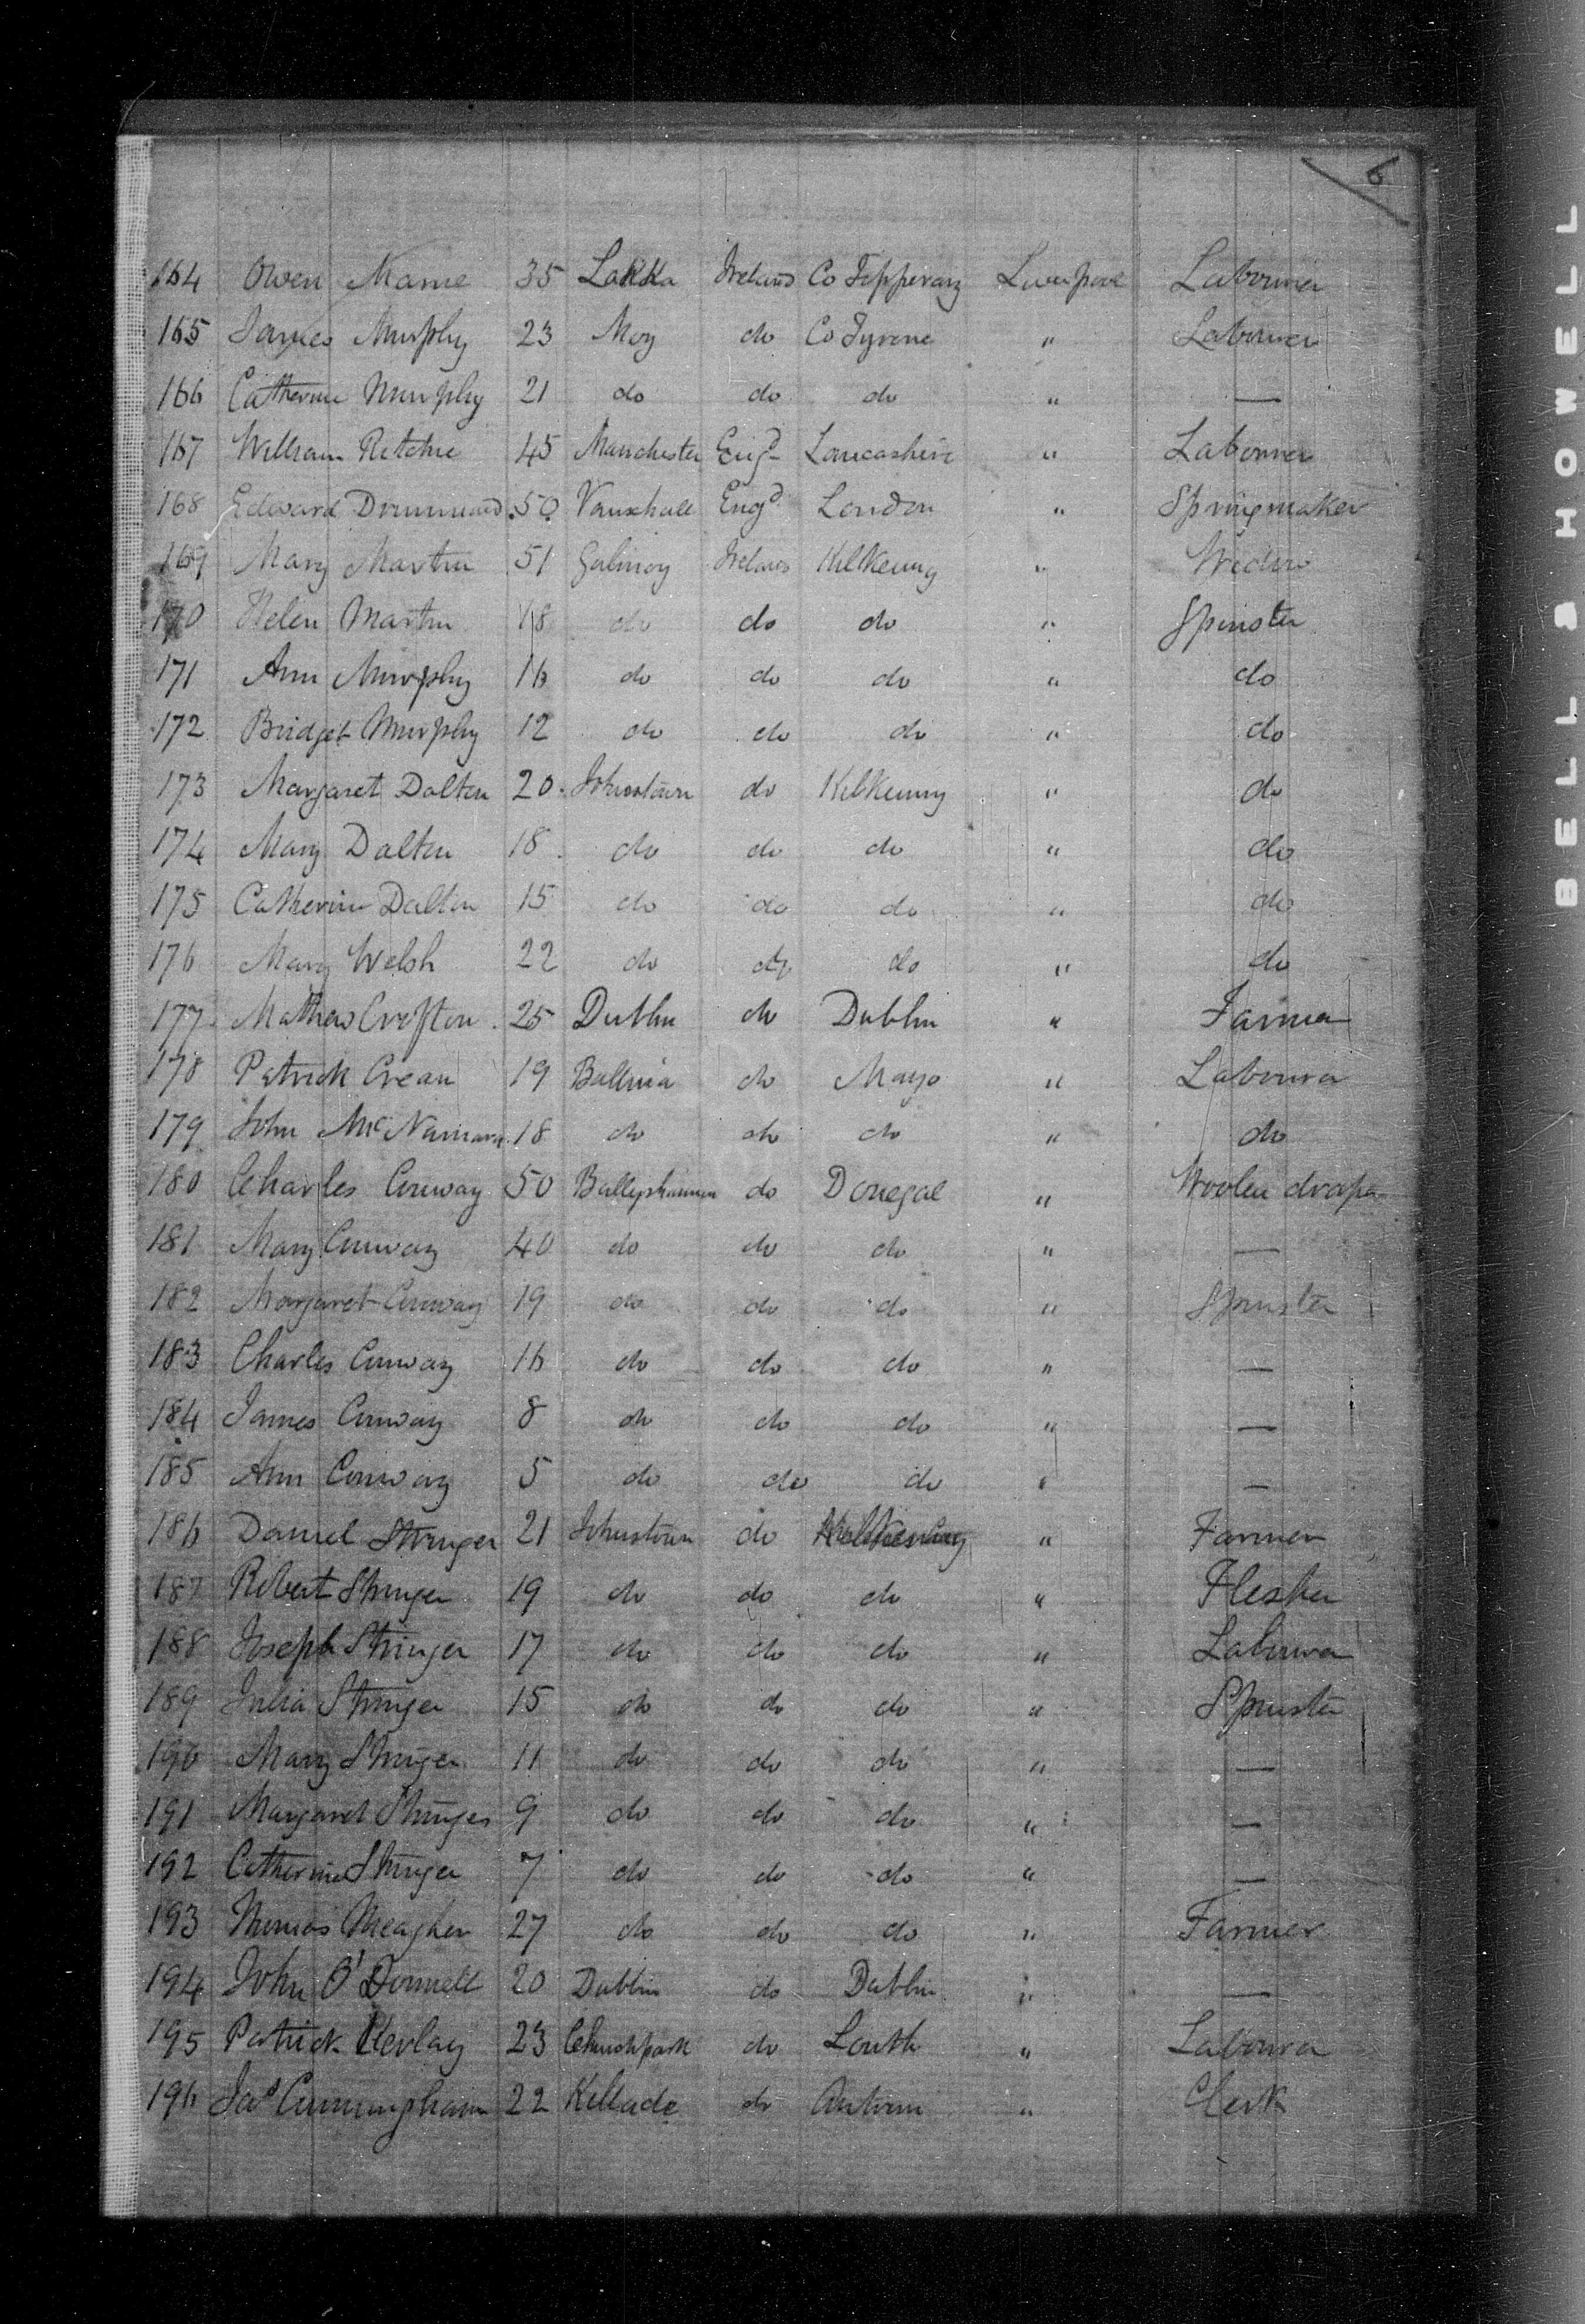 6
164 Owen Marne 35 Lakka Ireland Co Tipperary Liverpool Labourer
165 James Murphy 23 Moy do Co Tyrone " Labourer
166 Catherine Murphy 21 do do do " —
167 William Ritchie 45 Manchester Engd Lancashire " Labourer
168 Edward Drummond 50 Vauxhall Engd London " Springmaker
169 Mary Martin 51 Galmoy Ireland Kilkenny " Widow
170 Helen Martin 18 do do do " Spinster
171 Ann Murphy 16 do do do " do
172 Bridget Murphy 12 do do do " do
173 Margaret Dalton 20 Johnstown do Kilkenny " do
174 Mary Dalton 18 do do do " do
175 Catherine Dalton 15 do do do " do
176 Mary Welsh 22 do do do " do
177 Mathew Crofton 25 Dublin do Dublin " Farmer
178 Patrick Crean 19 Ballina do Mayo " Labourer
179 John McNamara 18 do do do " do
180 Charles Conway 50 Ballyshannon do Donegal " Woolen draper
181 Mary Conway 40 do do do " —
182 Margaret Conway 19 do do do " Spinster
183 Charles Conway 16 do do do " —
184 James Conway 8 do do do " —
185 Ann Conway 5 do do do " —
186 Daniel Stringer 21 Johnstown do Kilkenny " Farmer
187 Robert Stringer 19 do do do " Flesher
188 Joseph Stringer 17 do do do " Labourer
189 Julia Stringer 15 do do do " Spinster
190 Mary Stringer 11 do do do " —
191 Margaret Stringer 9 do do do " —
192 Catherine Stringer 7 do do do " —
193 Thomas Meagher 27 do do do " Farmer
194 John O'Donnell 20 Dublin do Dublin " —
195 Patrick 23 Churchpark do Louth " Labourer
196 Jas Cunningham 22 Killade do Antrim " Clerk
BELL & HOWELL